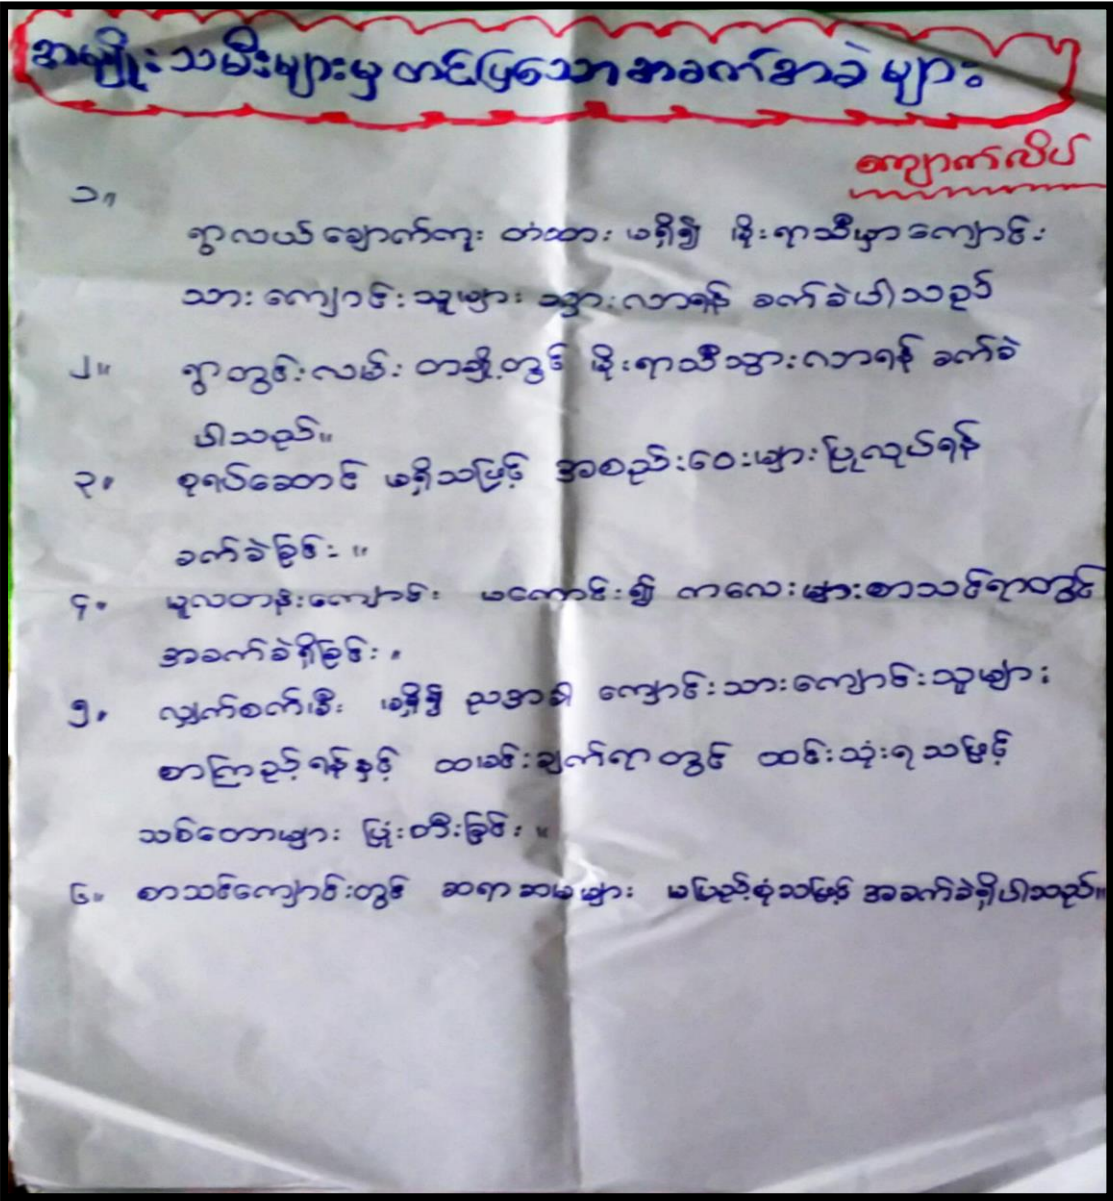 အမျိုးသမီးများမှ တင်ပြသော အခက်အခဲ များ
ကျောက်လိပ်
၁။
ရွာလယ်ချောက်ကူး တံထား မရှိ၍ မိုးရာသီမှာ ကျောင်း
သား ကျောင်းသူများ သွားလာရန် ခက်ခဲပါသည်
၂။ ရွာတွင်းလမ်း တချို့တွင် မိုးရာသီသွားလာရန် ခက်ခဲ
ပါသည်။
၃။ စုရပ်ဆောင် မရှိသဖြင့် အစည်းဝေးများပြုလုပ်ရန်
ခက်ခဲခြင်း ။
၄။ မူလတန်းကျောင်း မကောင်း၍ ကလေးများစာသင်ရာတွင်
အခက်ခဲရှိခြင်း ။
၅။ လျှက်စက်မီး မရှိ၍ ညအခါ ကျောင်းသားကျောင်းသူများ
စာကြည့်ရန်နှင့် ထမင်းချက်ရာတွင် ထင်းသုံးရသဖြင့်
သစ်တောများ ပြုံးတီးခြင်း ။
၆။ စာသင်ကျောင်းတွင် ဆရာဆမများ မပြည့်စုံသဖြင့် အခက်ခဲရှိပါသည်။